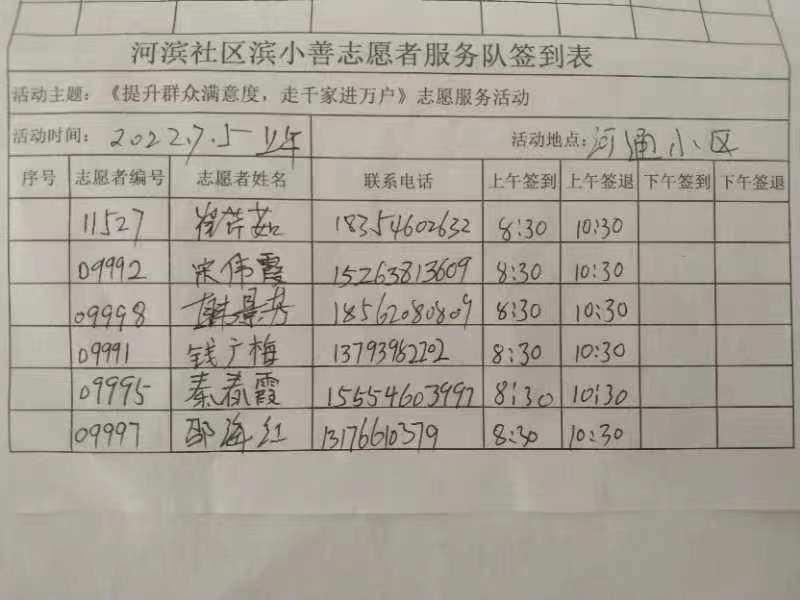 河滨社区滨小善志愿者服务队签到表
活动主题：《提升群众满意度，走千家进万户》志愿服务活动
活动时间：2022.7.5 上午 活动地点：河通小区
序号 志愿者编号 志愿者姓名 联系电话 上午签到 上午签退 下午签到 下午签退
11527 18354602632 8:30 10:30
09992 宋伟霞 15263813609 8:30 10:30
09998 18562080809 8:30 10:30
09991 钱广梅 13793962202 8:30 10:30
09995 秦春霞 15554603997 8:30 10:30
09997 邵海红 13176610379 8:30 10:30